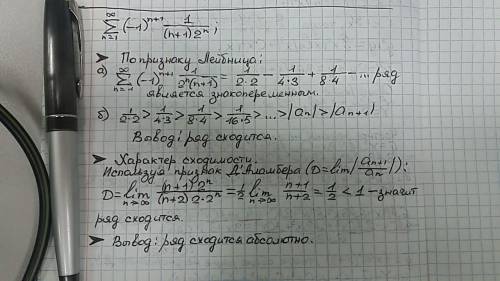 ∞∑n=1 (-1)^{n+1} 1/((n+1)2^n);
➤ По признаку Лейбница:
а) ∞∑n=1 (-1)^{n+1} 1/(2^n(n+1)) = 1/(2·2) - 1/(4·3) + 1/(8·4) - ... ряд
является знакопеременным.
б) 1/(2·2) > 1/(4·3) > 1/(8·4) > 1/(16·5) > ... > |a_n| > |a_{n+1}|
Вывод: ряд сходится.
➤ Характер сходимости.
Используя признак Д'Аламбера (D = lim |a_{n+1}/a_n|):
D = lim n→∞ ((n+1)2^n)/((n+2)2·2^n) = 1/2 lim n→∞ (n+1)/(n+2) = 1/2 < 1 - значит
ряд сходится.
➤ Вывод: ряд сходится абсолютно.